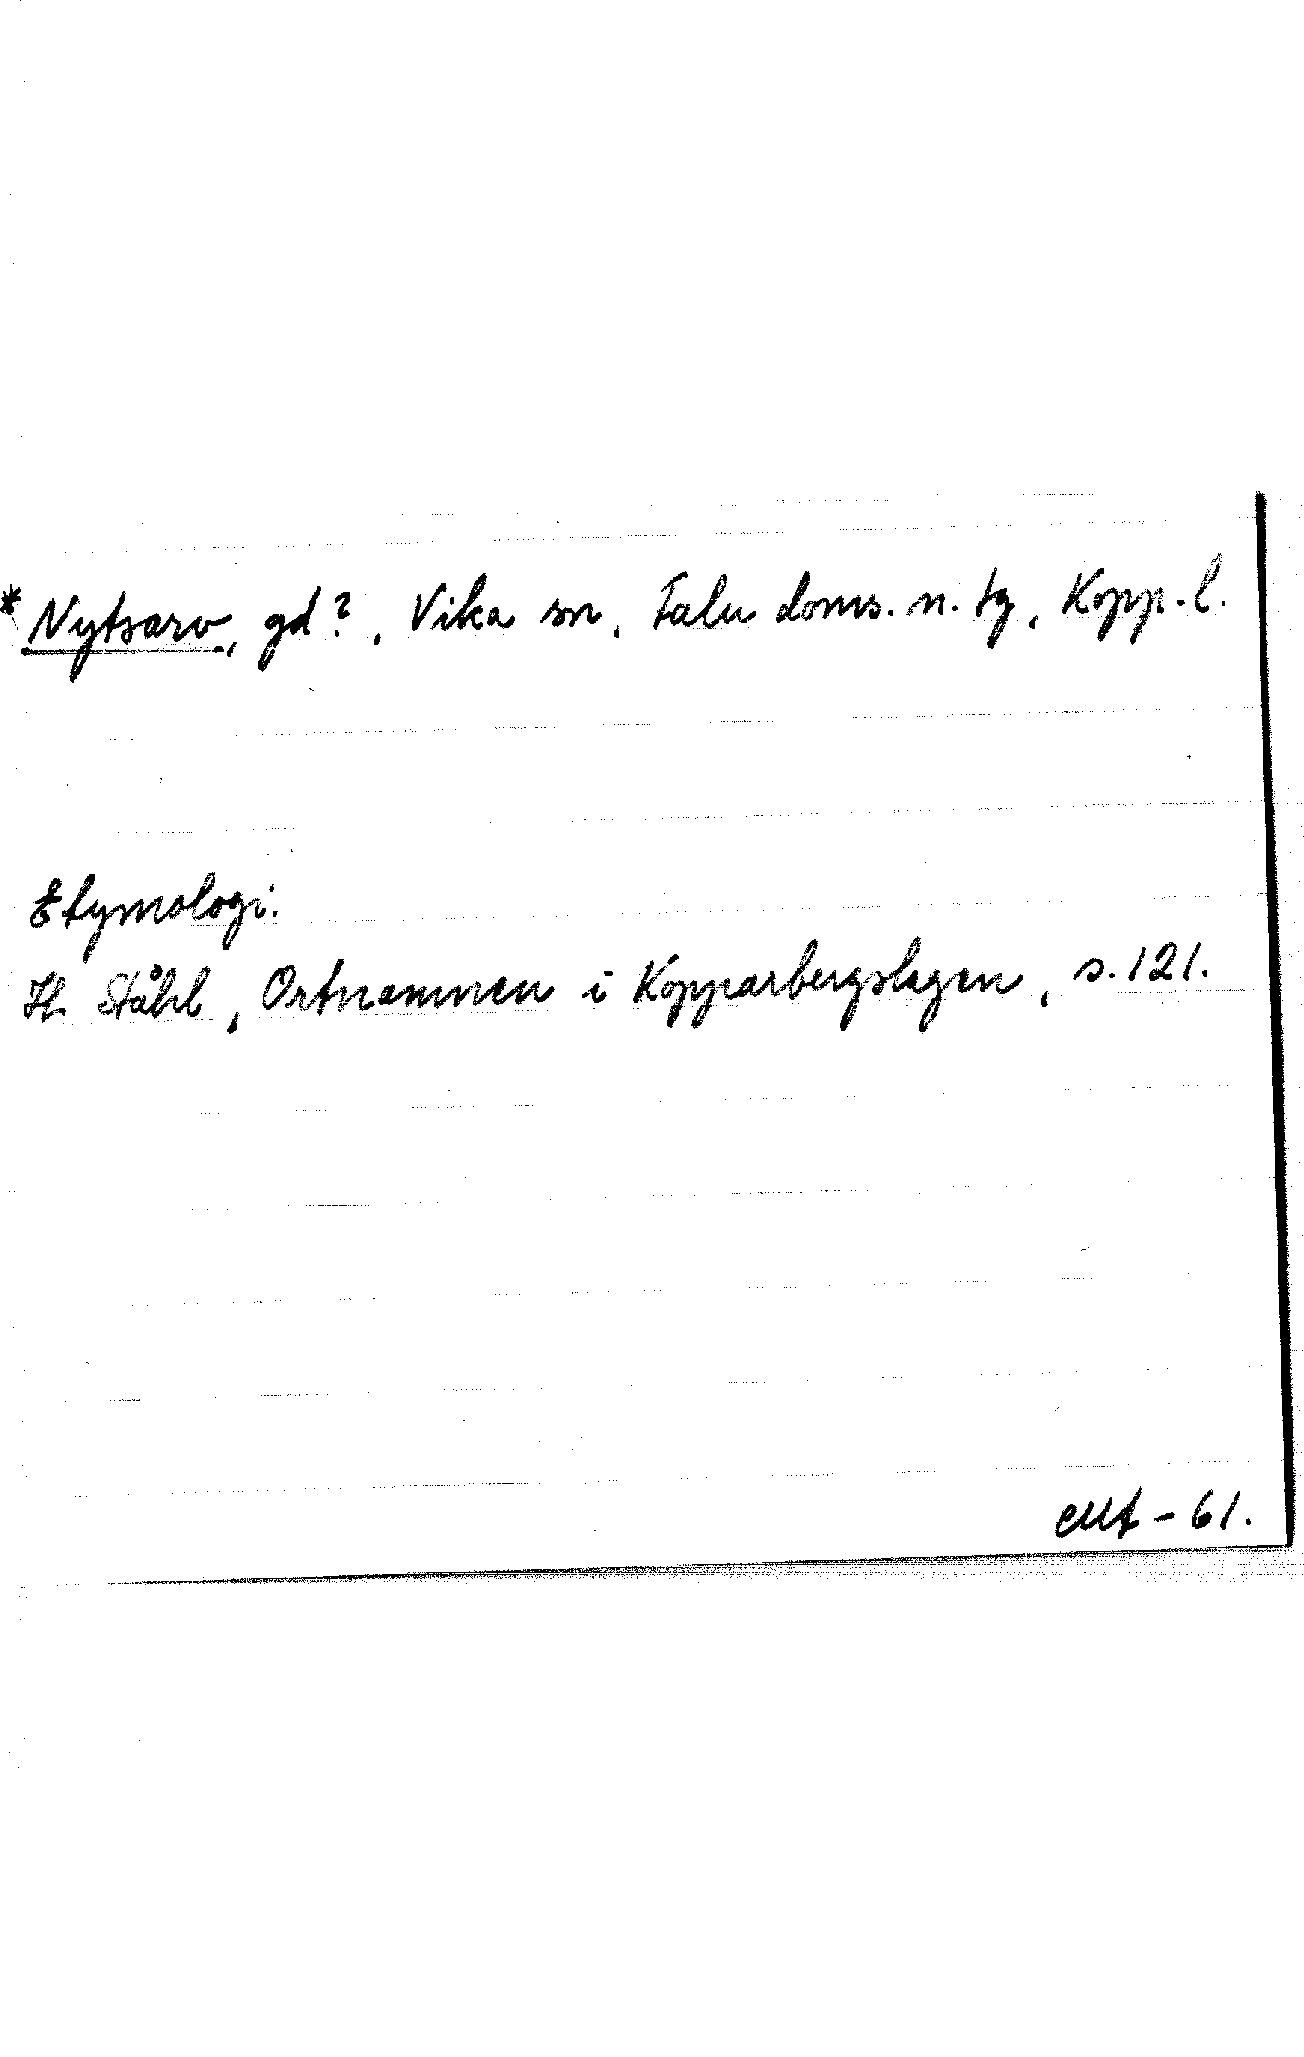 * Nytsarv, gd?, Vika sn, Falu doms. n. tg, Kopp. l.
Etymologi.
H. Ståhl, Ortnamnen i Kopparbergslagen, s. 121.
- 61.